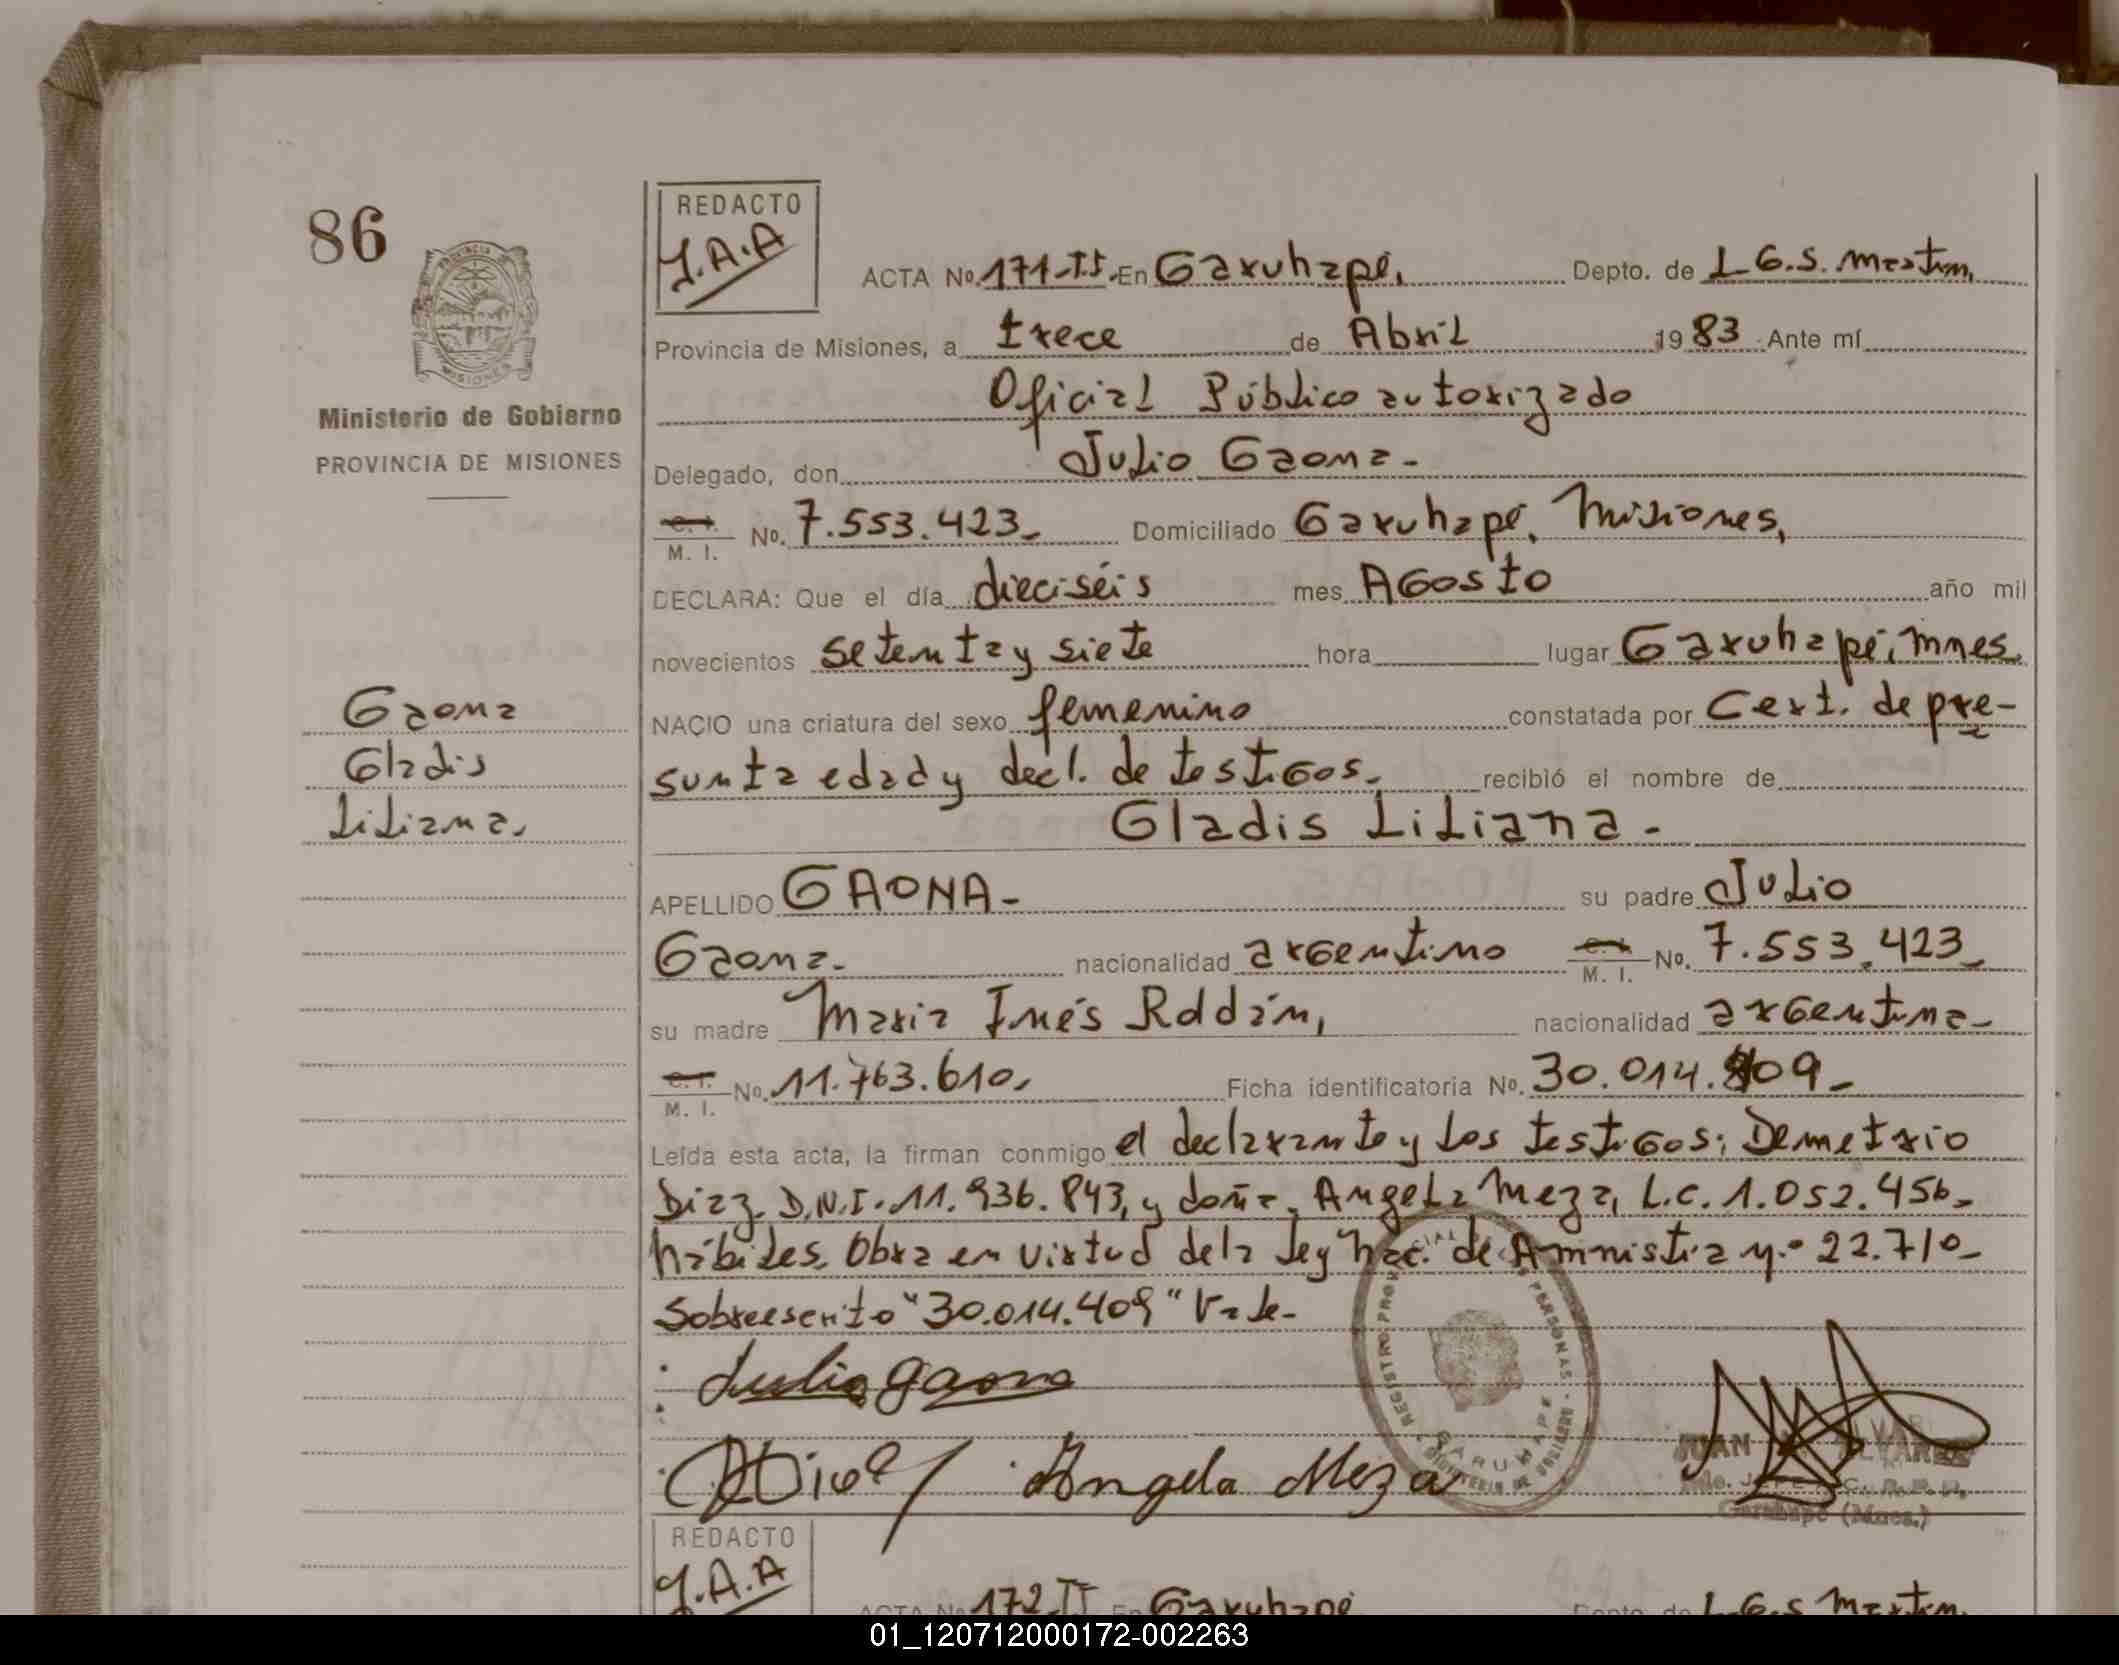 86
PROVINCIA DE
MISIONES
Ministerio de Gobierno
PROVINCIA DE MISIONES
Gaona
Gladis
Liliana.
REDACTO
J.A.A
ACTA No. 171-TI. En Garuhapé, Depto. de L G.S. martin,
Provincia de Misiones, a trece de Abril 19 83 Ante mí
Oficial Público autorizado
Delegado, don Julio Gaona-
C. I. M. I. No. 7.553.423- Domiciliado Garuhapé, Misiones,
DECLARA: Que el día dieciséis mes AGosto año mil
novecientos setenta y siete hora lugar Garuhapé, mnes.
NACIO una criatura del sexo femenino constatada por Cert. de pre-
sunta edad y decl. de testigos. recibió el nombre de
Gladis Liliana-
APELLIDO GAONA- su padre Julio
Gaona- nacionalidad argentino C. I. M. I. No. 7.553.423-
su madre Maria Inés Roldán, nacionalidad argentina-
C. I. M. I. No. 11.763.610, Ficha identificatoria No. 30.014.409-
Leída esta acta, la firman conmigo el declarante y los testigos; Demetrio
Diaz D.N.I. 11.936.843, y doña Angela Meza, L.C. 1.052.456-
hábiles. Obra en virtud de la ley Nac. de Amnistia n.º 22.710-
Sobreescrito "30.014.409" Vale-
Julio gaona
Angela Meza
REGISTRO PROVINCIAL DE LAS PERSONAS
GARUHAPE
MINISTERIO DE GOBIERNO
JUAN ALVAREZ
Garuhapé (Mnes.)
REDACTO
J.A.A
ACTA No. 172-TI En Garuhapé Depto. de L.G.S Martin
01_120712000172-002263